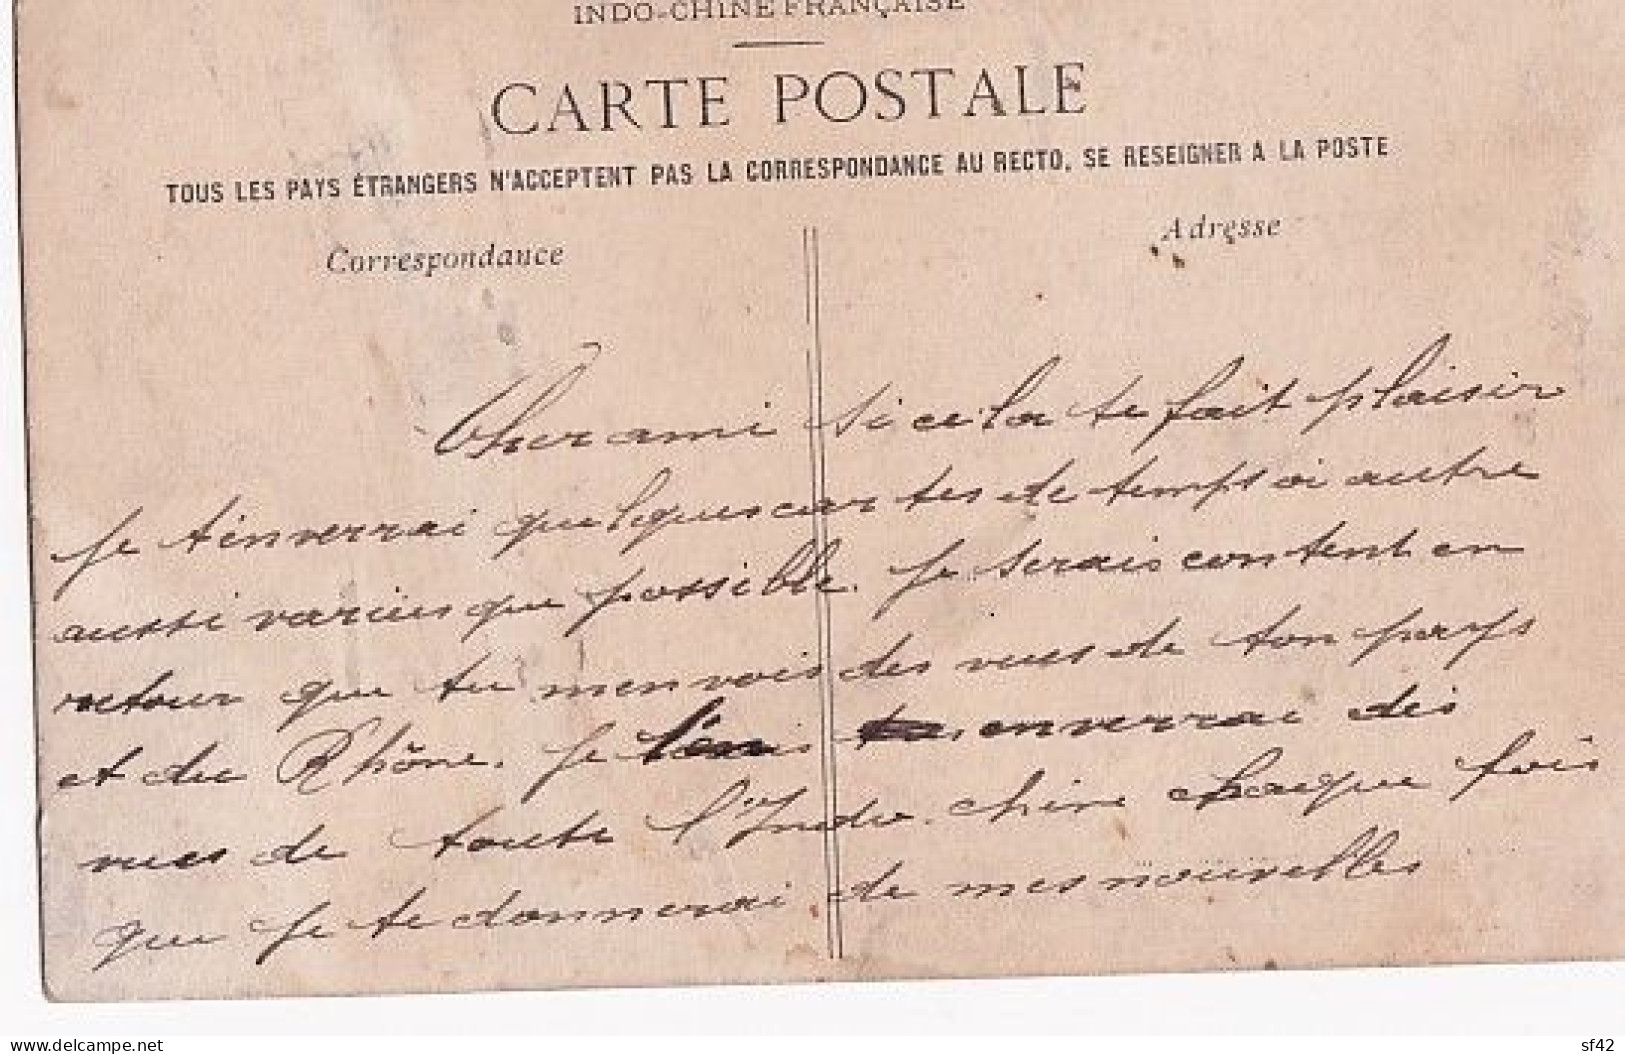 INDO-CHINE FRANÇAISE
CARTE POSTALE
TOUS LES PAYS ÉTRANGERS N'ACCEPTENT PAS LA CORRESPONDANCE AU RECTO, SE RESEIGNER A LA POSTE
Correspondance
Adresse
Cher ami si cela te fait plaisir
je t'enverrai quelques cartes de temps à autre
aussi variées que possible. je serais content en
retour que tu m'envois des vues de ton pays
et du Rhône. je t'en enverrai des
vues de toute l'Indo chine chaque fois
que je te donnerai de mes nouvelles
www.delcampe.net
sf42